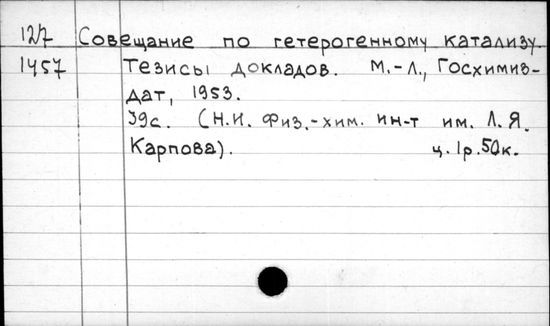 127 Совещание по гетерогенному катализу.
1457 Тезисы докладов. М.-Л., Госхимиз-
дат, 1953.
39с. (Н.И. Физ.-хим. ин-т им. Л.Я.
Карпова). ц. 1р.50к.